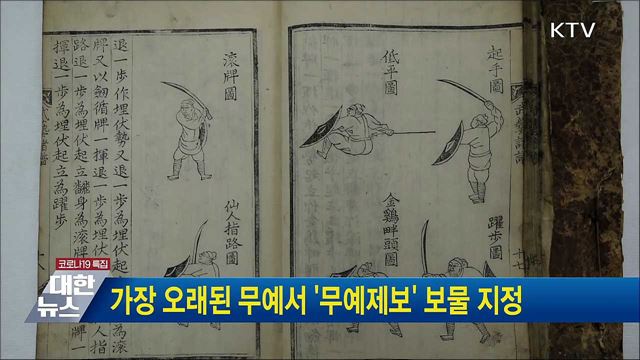 KTV
起手圖
躍步圖
低平圖
金鷄畔頭圖
滾牌圖
仙人指路圖
退一步作埋伏勢又退一步為埋伏
牌又以劒循牌一揮退一步為埋伏
路退一步為埋伏起立飜身為滾
揮退一步為埋伏起立為躍步
코로나19 특집
대한
뉴스
가장 오래된 무예서 '무예제보' 보물 지정